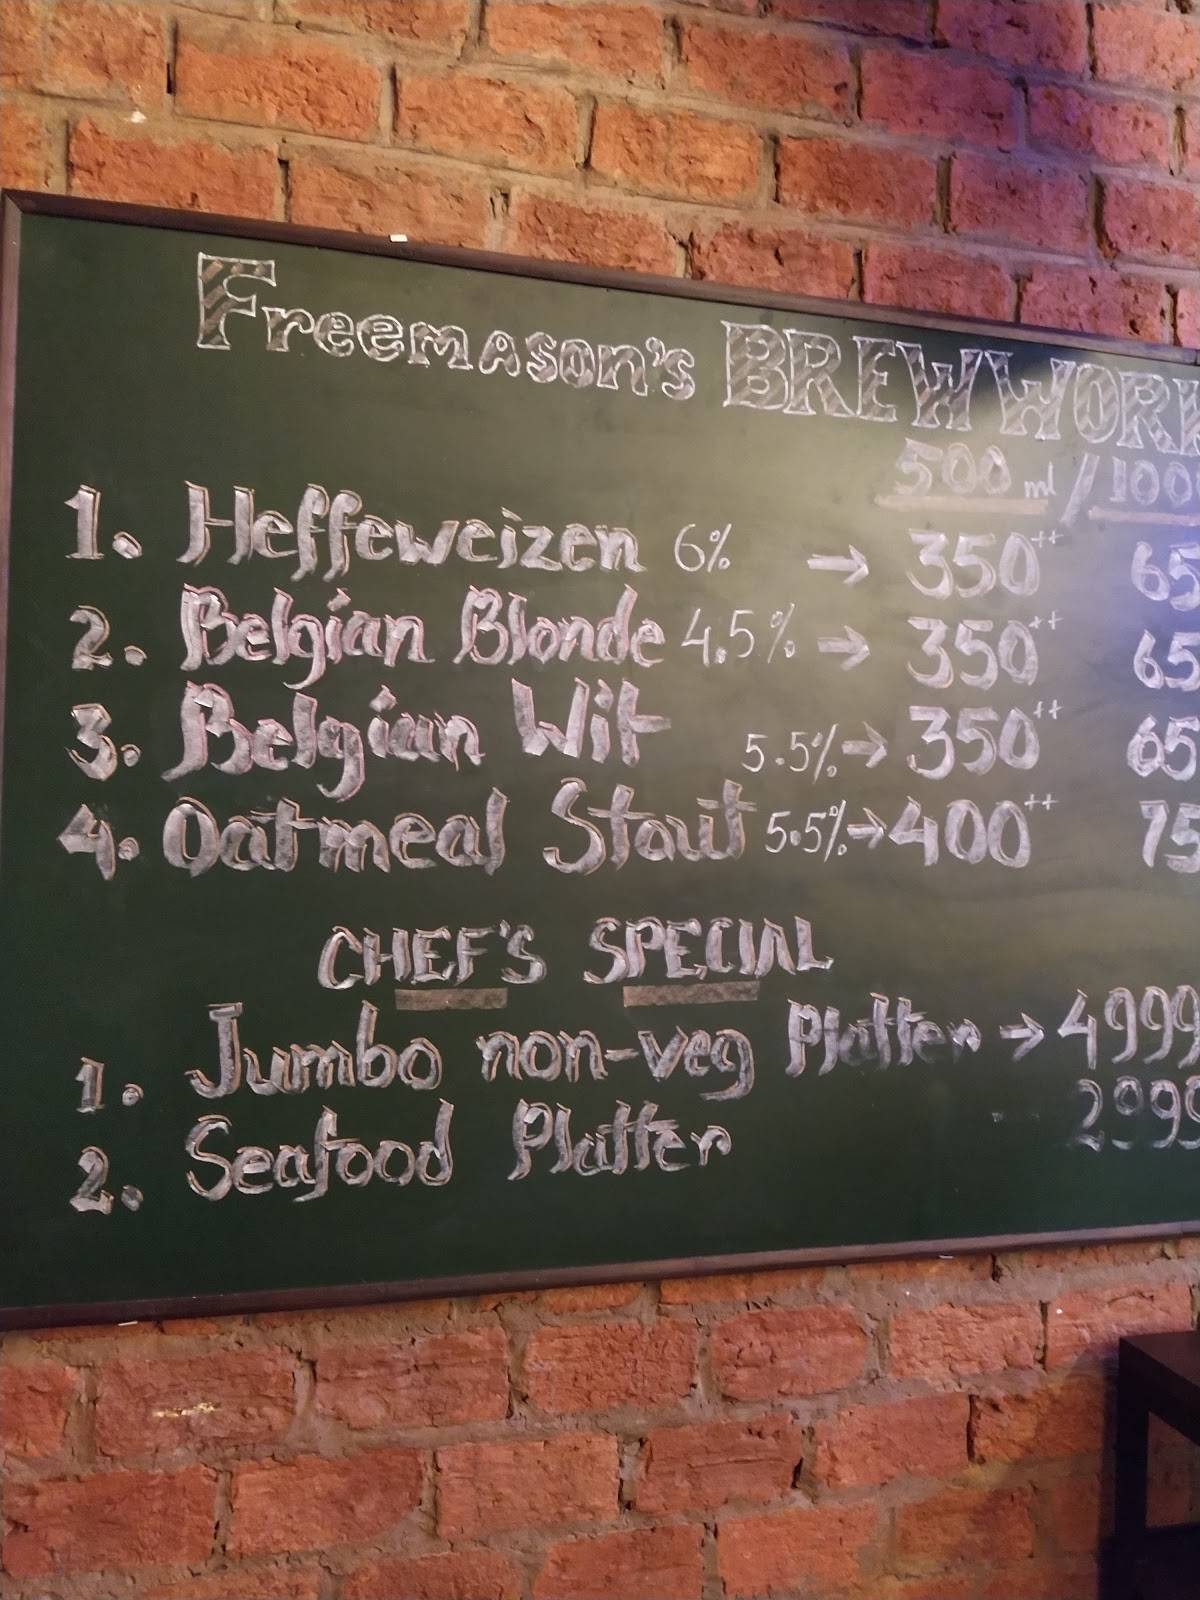 Freemason's BREWWORK
500 ml / 100
1. Heffeweizen 6% → 350++ 65
2. Belgian Blonde 4.5% → 350++ 65
3. Belgian Wit 5.5% → 350++ 65
4. Oatmeal Stout 5.5% → 400++ 75
CHEF'S SPECIAL
1. Jumbo non-veg Platter → 4999
2. Seafood Platter 2999